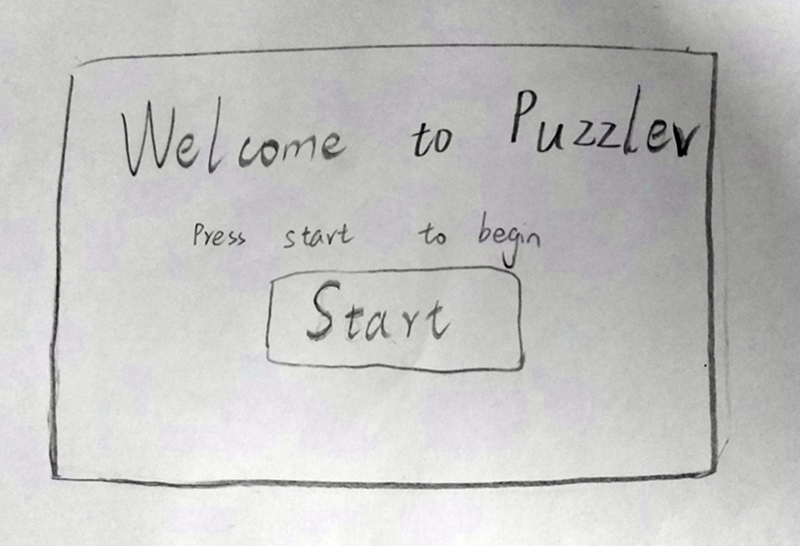 Welcome to Puzzler
Press start to begin
Start